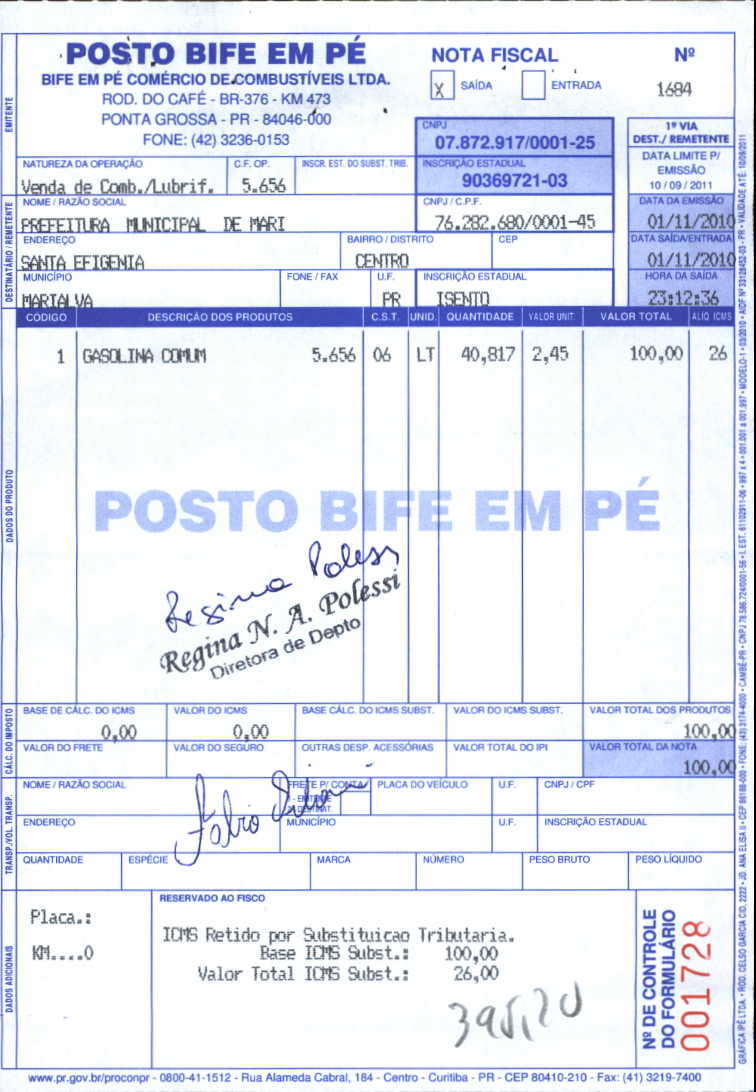 POSTO BIFE EM PÉ
BIFE EM PÉ COMÉRCIO DE COMBUSTÍVEIS LTDA.
ROD. DO CAFÉ - BR-376 - KM 473
PONTA GROSSA - PR - 84046-000
FONE: (42) 3236-0153
NOTA FISCAL
X SAÍDA ENTRADA
Nº
1684
EMITENTE
CNPJ
07.872.917/0001-25
INSCRIÇÃO ESTADUAL
90369721-03
1ª VIA
DEST./ REMETENTE
DATA LIMITE P/
EMISSÃO
10 / 09 / 2011
NATUREZA DA OPERAÇÃO C.F. OP. INSCR. EST. DO SUBST. TRIB.
Venda de Comb./Lubrif. 5.656
DESTINATÁRIO / REMETENTE
NOME / RAZÃO SOCIAL CNPJ / C.P.F. DATA DA EMISSÃO
PREFEITURA MUNICIPAL DE MARI 76.282.680/0001-45 01/11/2010
ENDEREÇO BAIRRO / DISTRITO CEP DATA SAÍDA/ENTRADA
SANTA EFIGENIA CENTRO 01/11/2010
MUNICÍPIO FONE / FAX U.F. INSCRIÇÃO ESTADUAL HORA DA SAÍDA
MARIALVA PR ISENTO 23:12:36
CÓDIGO DESCRIÇÃO DOS PRODUTOS C.S.T. UNID. QUANTIDADE VALOR UNIT. VALOR TOTAL ALIQ. ICMS
1 GASOLINA COMUM 5.656 06 LT 40,817 2,45 100,00 26
DADOS DO PRODUTO
POSTO BIFE EM PÉ
Regina Polessi
Regina N. A. Polessi
Diretora de Depto
CÁLC. DO IMPOSTO
BASE DE CÁLC. DO ICMS VALOR DO ICMS BASE CÁLC. DO ICMS SUBST. VALOR DO ICMS SUBST. VALOR TOTAL DOS PRODUTOS
0,00 0,00 100,00
VALOR DO FRETE VALOR DO SEGURO OUTRAS DESP. ACESSÓRIAS VALOR TOTAL DO IPI VALOR TOTAL DA NOTA
100,00
TRANSP./VOL. TRANSP.
NOME / RAZÃO SOCIAL FRETE P/ CONTA PLACA DO VEÍCULO U.F. CNPJ / CPF
Fabio
ENDEREÇO MUNICÍPIO U.F. INSCRIÇÃO ESTADUAL
QUANTIDADE ESPÉCIE MARCA NÚMERO PESO BRUTO PESO LÍQUIDO
DADOS ADICIONAIS
Placa.:
KM....0
RESERVADO AO FISCO
ICMS Retido por Substituicao Tributaria.
Base ICMS Subst.: 100,00
Valor Total ICMS Subst.: 26,00
395,20
Nº DE CONTROLE
DO FORMULÁRIO
001728
www.pr.gov.br/proconpr - 0800-41-1512 - Rua Alameda Cabral, 184 - Centro - Curitiba - PR - CEP 80410-210 - Fax: (41) 3219-7400